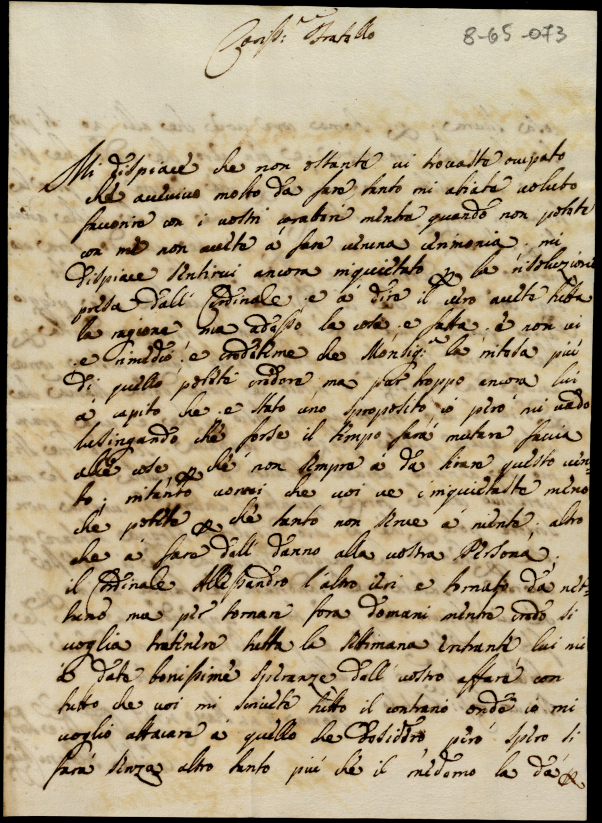 Cariss:mo Fratello
8-65-073
Mi dispiace che non ostante vi trovaste ocupato
che avevivo molto da fare tanto mi abiate voluto
favorire con i vostri caratteri mentre quando non potete
con me non avete a fare veruna cerimonia. mi
dispiace sentirvi ancora inquietato p la risoluzione
presa dall Cardinale e a dire il vero avete tutta
la ragione ma adesso la cosa e fatta e non vi
e rimedio e credeteme che Monsig:re la intesa più
di quello potete credere ma pur troppo ancora lui
à capito che e stato uno sproposito io però mi vado
lusingando che forse il tempo farà mutare faccia
alle cose p che non sempre à da tirare questo ven-
to; intanto vorrei che voi ve inquietaste meno
che potete p che tanto non serve a niente altro
che a fare dall danno alla vostra Persona.
il Cardinale Allessandro l'altro ieri e tornato da net-
tuno ma per tornare fora domani mentre credo si
voglia tratenere tutta la settimana entrante lui mi
à date bonissime speranze dell vostro affare con
tutto che voi mi scrivete tutto il contrario onde io mi
voglio attacare a quello che desidero però spero si
farà senza altro tanto più che il medemo la dà p